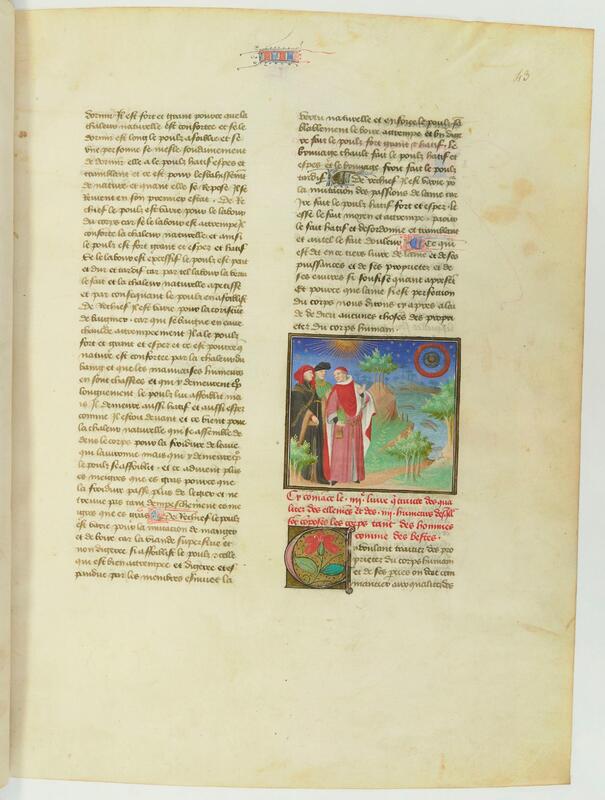 43
dormir il est fort et grant pource que la
chaleur naturelle est confortee et se le
dormir est long le pouls afoiblie et se
une personne se mesle soudainement
de dormir elle a le pouls hatif espes et
tremblant et ce est pour
de nature et quant elle se repose il se
revient en son premier estat. De re
chief le pouls est varie pour le labour
du corps car se le labour est attrempe il
conforte la chaleur naturelle et ainsi
le pouls est fort grant et espes et hatif
Et se labour est excessif le pouls est petit
et dur et tardif car par tel labour la vertu
se fait et la chaleur naturelle apetisse
et par consequent le pouls en afoiblist
De rechief il est varie pour la
de baignier. car qui se baigne en eaue
chaulde attrempeement il a le pouls
fort et grant et espes et ce est pource que
nature est confortee par la chaleur du
baing et que les mauvaises humeurs
en sont chassees et qui y demeure
longuement le pouls lui afoiblist mais
il demeure aussi hatif et aussi espes
comme il estoit devant et ce vient pour
la chaleur naturelle qui se assemble de
dens le corps pour la froidure de leaue
qui lavironne mais qui y demeure
le pouls se afoiblist. et ce advient plus
es meigres que es gras pource que
la froidure passe plus de legier et ne
treuve pas tant dempeschement comme
es gras De rechief le pouls
est varie pour la mutacion de manger
et de boire car la viande superflue et
non digeree si afoiblist le pouls. celle
qui est bien attrempee et digeree et es
pandue par les membres esmuet la
vertu naturelle et enforce le pouls sem
blablement le boire attrempe et bien dige
re fait le pouls fort grant et hatif. Le
bruvage chault fait le pouls hatif et
espes et le bruvage froit fait le pouls
tardif De rechief il est varie pour
la mutacion des passions de lame car
ire fait le pouls hatif fort et espes. le
esse le fait moien et attrempe. paour
le fait hatif et desordonne et tremblant
et autel le fait douleur Ce qui
est dit en ce tiers livre de lame et de ses
puissances et de ses proprietez et de
ses euvres si souffise quant a present
Et pource que lame si est perfection
du corps nous dirons cy apres a laide
de dieu aucunes choses des propri
etez du corps humain
Cy commance le .iiii.e livre qui traitte des qua
litez des elemens et des .iiii. humeurs desquel
les sont composez les corps tant des hommes
comme des bestes.
En voulant traitter des pro
prietez du corps humain
et de ses parties on doit com
mancier aux qualitez des